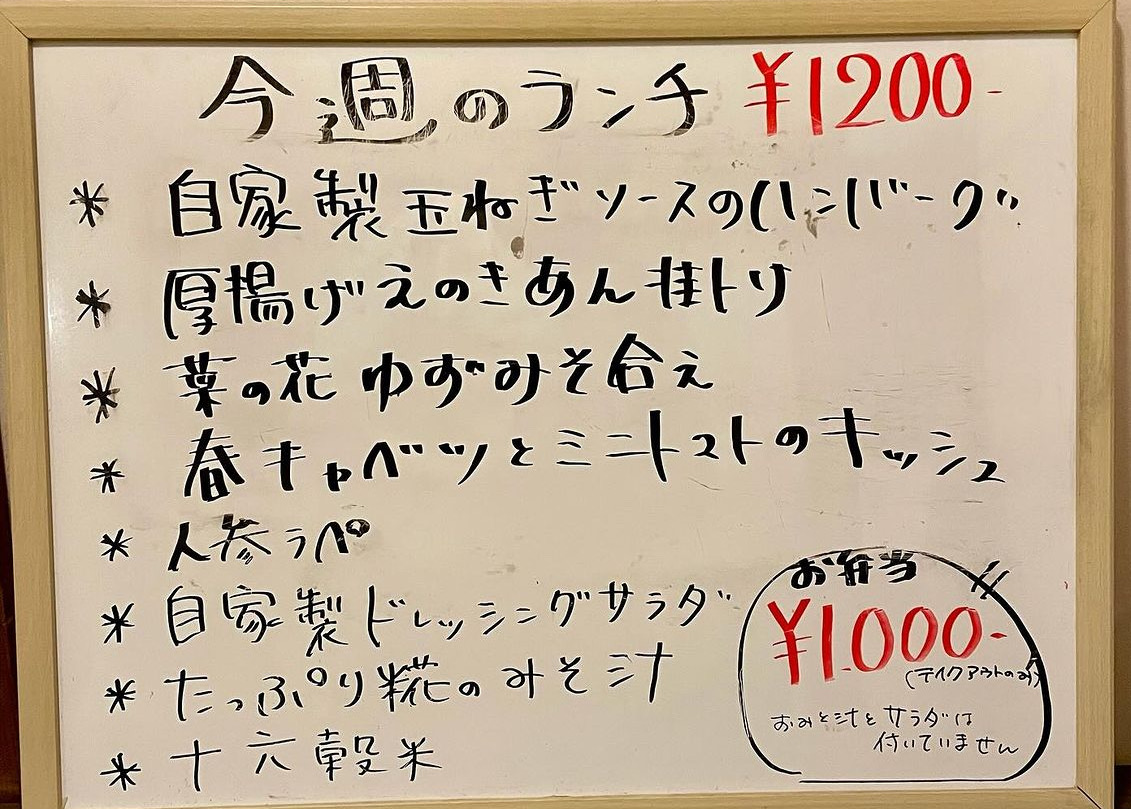 今週のランチ ¥1200-
* 自家製玉ねぎソースのハンバーグ
* 厚揚げえのきあん掛トリ
* 菜の花ゆずみそ合え
* 春キャベツとミニトマトのキッシュ
* 人参ラペ
* 自家製ドレッシングサラダ
* たっぷり糀のみそ汁
* 十六穀米
お弁当
¥1.000-
(テイクアウトのみ)
おみそ汁とサラダは
付いていません